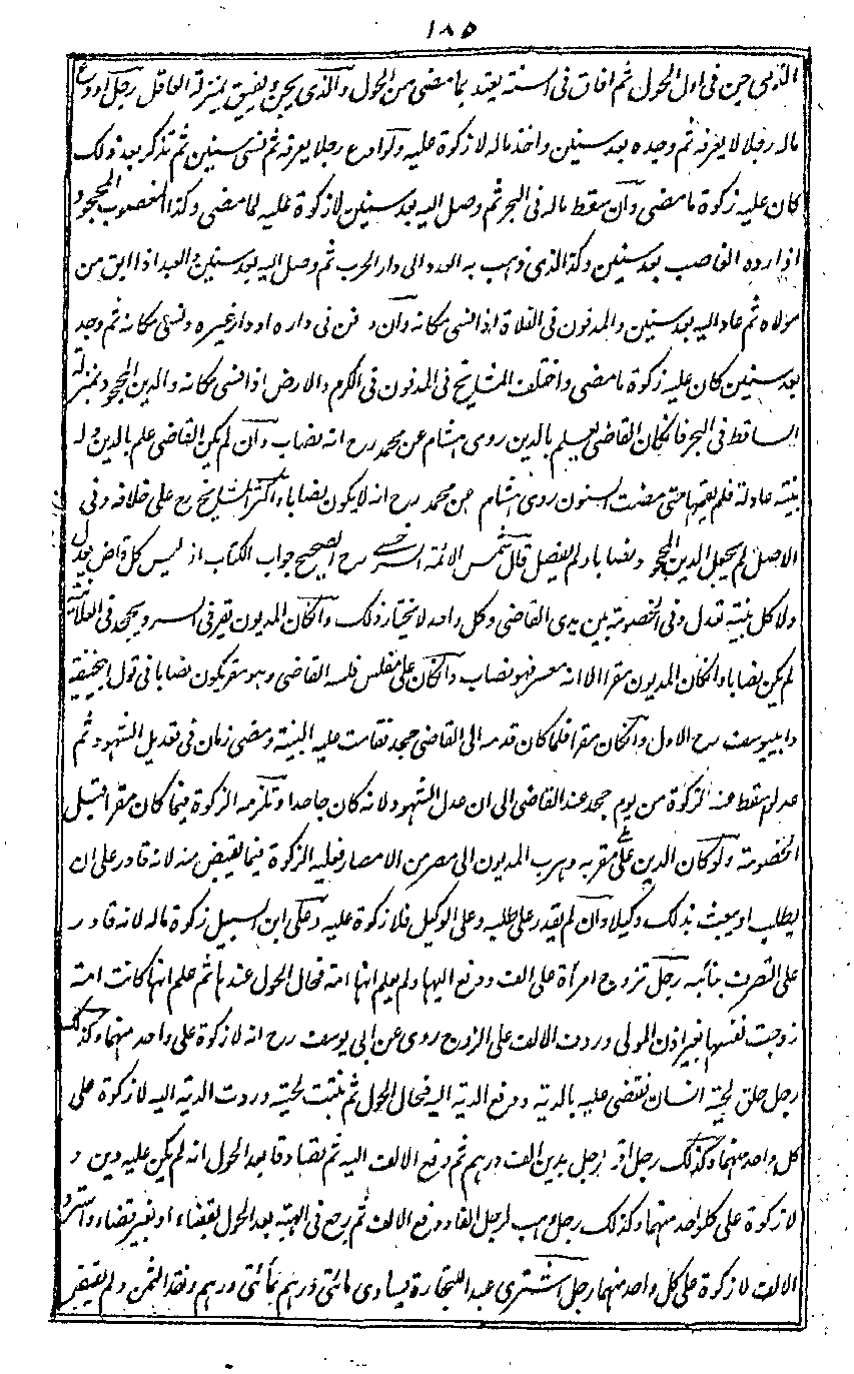 ١٨٥
الذمى جن فى اول الحول ثم افاق فى السنة يعتد بما مضى من الحول والذى يجن ويفيق بمنزلة العاقل رجل اودع
ماله رجلا لا يعرفه ثم وجده بعد سنين واخذ ماله لا زكوة عليه ولو اودع رجلا يعرفه ثم نسى سنين ثم تذكر بعد ذلك
كان عليه زكوة ما مضى وان سقط ماله فى البحر ثم وصل اليه بعد سنين لا زكوة عليه لما مضى وكذا المغصوب المجحود
اذا رده الغاصب بعد سنين وكذا الذى ذهب به العدو الى دار الحرب ثم وصل اليه بعد سنين والعبد اذا ابق من
مولاه ثم عاد اليه بعد سنين والمدفون فى الفلاة اذا نسى مكانه وان دفن فى داره او دار غيره ونسى مكانه ثم وجد
بعد سنين كان عليه زكوة ما مضى واختلف المشايخ فى المدفون فى الكرم والارض اذا نسى مكانه والدين المجحود بمنزلة
الساقط فى البحر فانكان القاضى يعلم بالدين روى هشام عن محمد رح انه نصاب وان لم يكن القاضى علم بالدين وله
بينة عادلة فلم يقمها حتى مضت السنون روى هشام عن محمد رح انه لا يكون نصابا واكثر المشايخ رح على خلافه وفى
الاصل لم يجعل الدين المجحود نصابا ولم يفصل قال شمس الائمة السرخسى رح الصحيح جواب الكتاب اذ ليس كل قاض يعدل
ولا كل بينة تعدل وفى الخصومة بين يدى القاضى وكل واحد لا يختار ذلك وانكان المديون يقر فى السر ويجحد فى العلانية
لم يكن نصابا وانكان المديون مقرا الا انه معسر فهو نصاب وانكان على مفلس فلسه القاضى وهو مقر يكون نصابا فى قول ابيحنيفة
وابيوسف رح الاول وانكان مقرا فلما كان قدمه الى القاضى جحد فقامت عليه البينة ومضى زمان فى تعديل الشهود ثم
عدلوا سقط عنه الزكوة من يوم جحد عند القاضى الى ان عدل الشهود لانه كان جاحدا وتلزمه الزكوة فيما كان مقرا قبل
الخصومة ولو كان الدين على مقر به وهرب المديون الى مصر من الامصار فعليه الزكوة فيما يقبض منه لانه قادر على ان
يطلب او يبعث بذلك وكيلا وان لم يقدر على طلبه وعلى الوكيل فلا زكوة عليه وعلى ابن السبيل زكوة ماله لانه قادر
على التصرف بنائبه رجل تزوج امرأة على الف ودفع اليها ولم يعلم انها امة فحال الحول عندها ثم علم انها كانت امة
زوجت نفسها بغير اذن المولى وردت الالف على الزوج روى عن ابى يوسف رح انه لا زكوة على واحد منهما وكذلك
رجل حلق لحية انسان فقضى عليه بالدية ودفع الدية اليه فحال الحول ثم نبتت لحيته وردت الدية اليه لا زكوة على
كل واحد منهما وكذلك رجل اقر لرجل بدين الف درهم ثم دفع الالف اليه ثم تصادقا بعد الحول انه لم يكن عليه دين و
لا زكوة على كل واحد منهما وكذلك رجل وهب لرجل الفا ودفع الالف ثم رجع فى الهبة بعد الحول بقضاء او بغير قضاء واسترد
الالف لا زكوة على كل واحد منهما رجل اشترى عبدا للتجارة يساوى مائتى درهم بمأتى درهم ونقد الثمن ولم يقبض